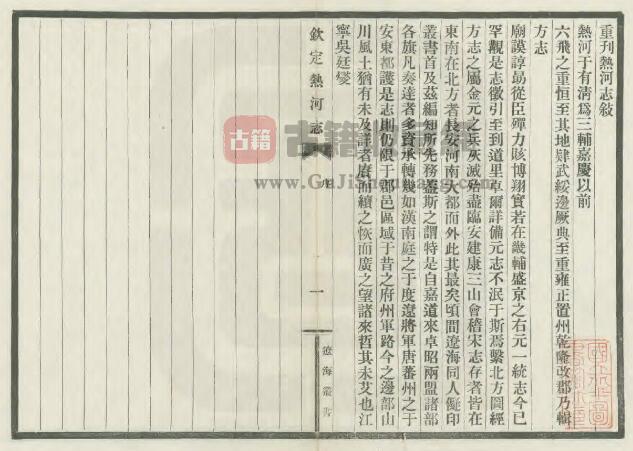 重刊熱河志敘
熱河于有清爲三輔嘉慶以前
六飛之重恒至其地肄武綏邊厥典至重雍正置州乾隆改郡乃輯
方志
廟謨諄勗從臣殫力賅博翔實若在畿輔盛京之右元一統志今已
罕觀是志徵引至到道里卓爾詳備元志不泯于斯焉繫北方圖經
方志之屬金元之兵灰滅殆盡臨安建康三山會稽宋志存者皆在
東南在北方者長安河南大都而外此其最矣頃間遼海同人儗印
叢書首及茲編知所先務蓋斯之謂特是自嘉道來卓昭兩盟諸部
各旗凡奏達者多資承轉幾如漢南庭之于度遼將軍唐蕃州之于
安東都護是志則仍限于郡邑區域于昔之府州軍路今之邊部山
川風土猶有未及詳者賡而續之恢而廣之望諸來哲其未艾也江
寧吳廷燮
欽定熱河志
序
一
遼海叢書
古籍
www.GuJiShuWang.com